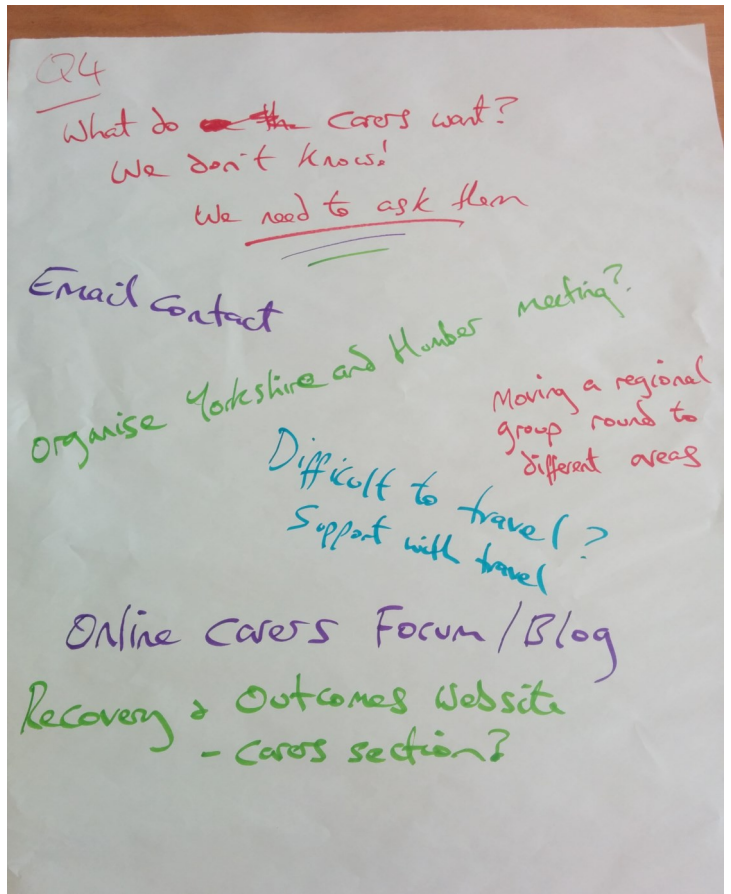 Q4
What do carers want?
We don't know!
We need to ask them
Email Contact
Organise Yorkshire and Humber meeting?
Moving a regional
group round to
different areas
Difficult to travel?
Support with travel
Online carers Forum/Blog
Recovery & Outcomes Website
- carers section?